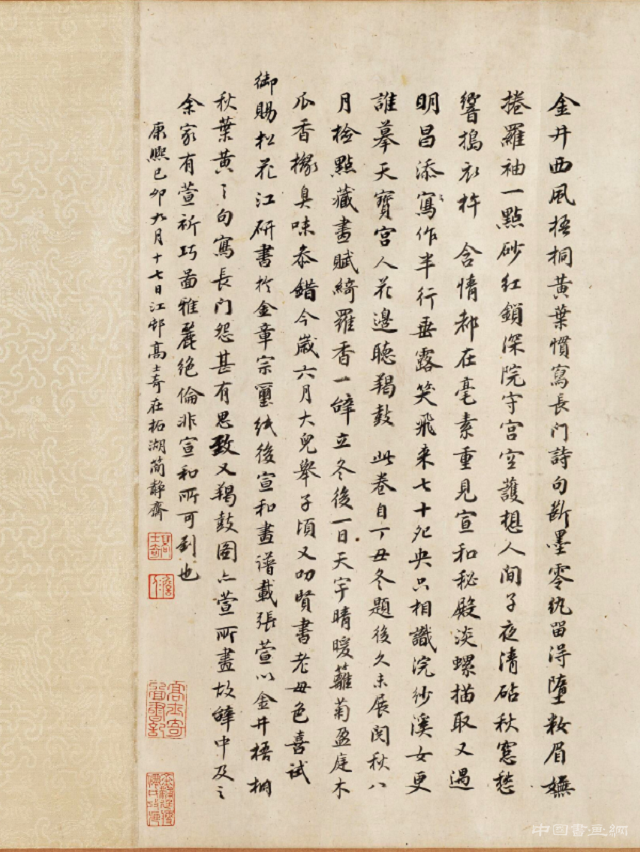 金井西風梧桐黃葉慣寫長門詩句斷墨零紈留得墮粧眉嫵
捲羅袖一點砂紅鎖深院守宮空護想人間子夜清砧秋窓愁
響搗衣杵 含情都在毫素重見宣和秘殿淡螺描取又遇
明昌添寫作半行垂露笑飛來七十二央只相識浣紗溪女更
誰摹天寶宮人花邊聽羯鼓 此卷自丁丑冬題後久未展閱秋八
月檢點藏畫賦綺羅香一辭立冬後一日天宇晴暖蘺菊盈庭木
瓜香櫞臭味叅錯今歲六月大兒舉子頃又叨賢書老母色喜試
御賜松花江研書於金章宗璽紙後宣和畫譜載張萱以金井梧桐
秋葉黃之句寫長門怨甚有思致又羯鼓圖亦萱所畫故辭中及之
余家有萱祈巧圖雅麗絕倫非宣和所可到也
康熙己卯九月十七日江邨高士奇在柘湖簡靜齋
中国書画網